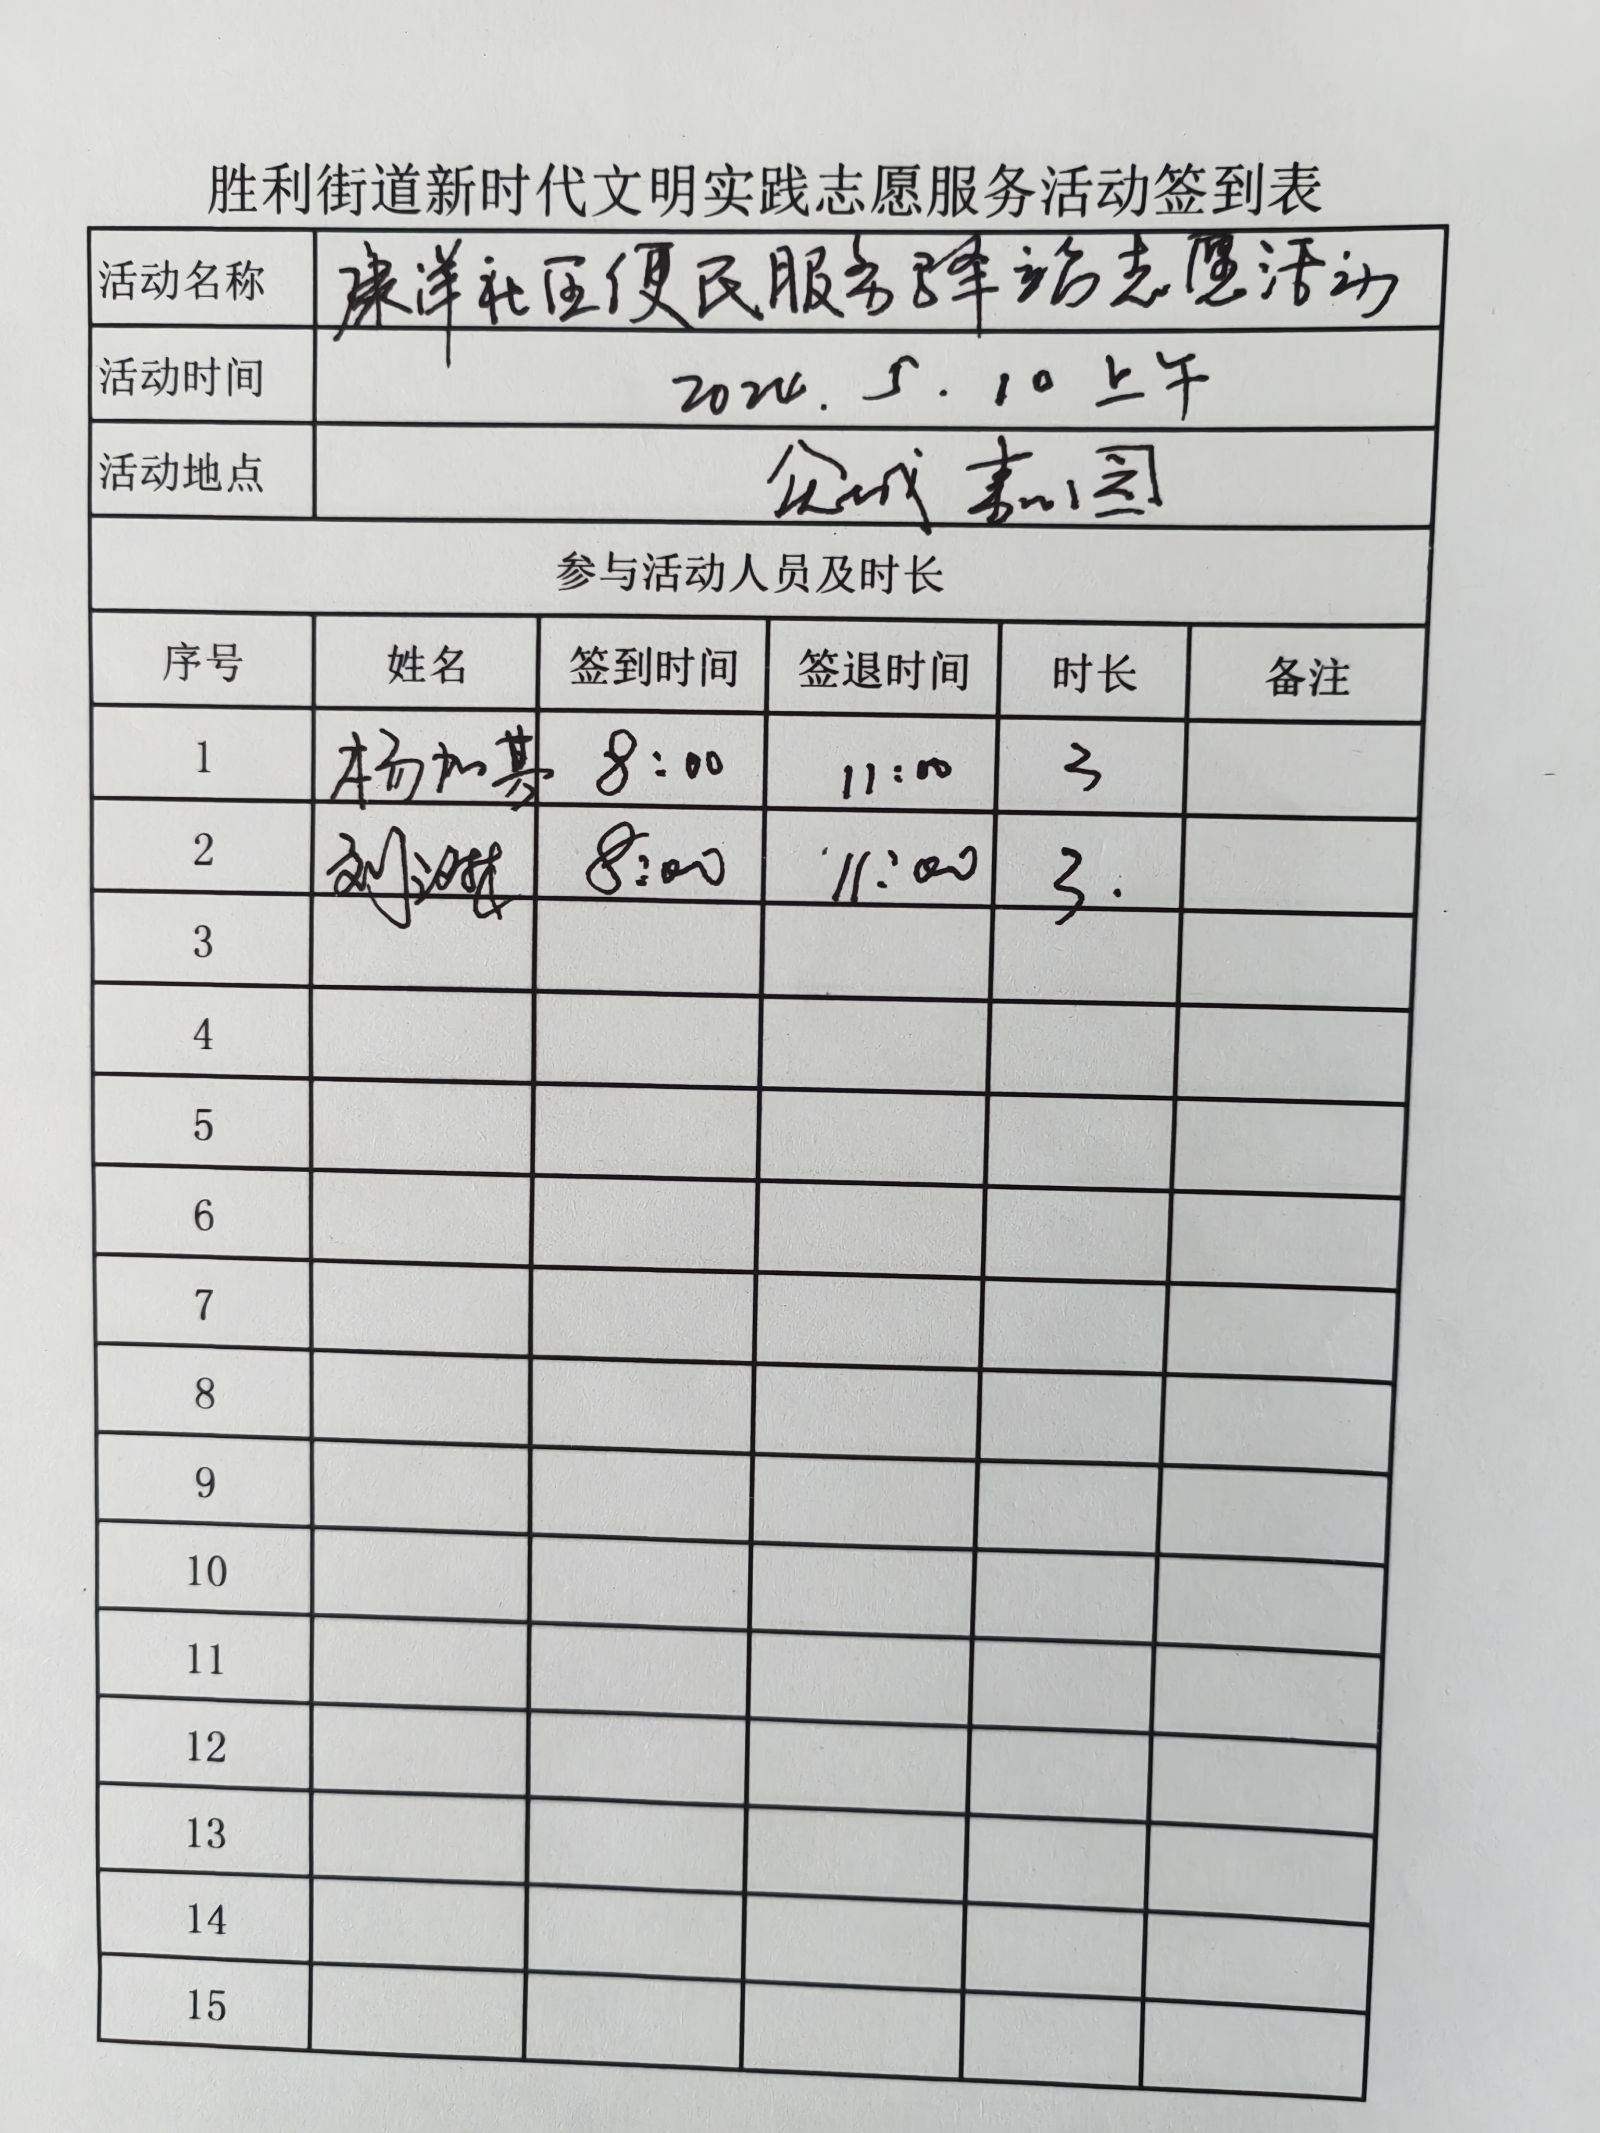 胜利街道新时代文明实践志愿服务活动签到表
活动名称 康洋社区便民服务驿站志愿活动
活动时间 2024.5.10上午
活动地点 嘉园
参与活动人员及时长
序号 姓名 签到时间 签退时间 时长 备注
1 杨加其 8:00 11:00 3
2 刘 8:00 11:00 3.
3
4
5
6
7
8
9
10
11
12
13
14
15